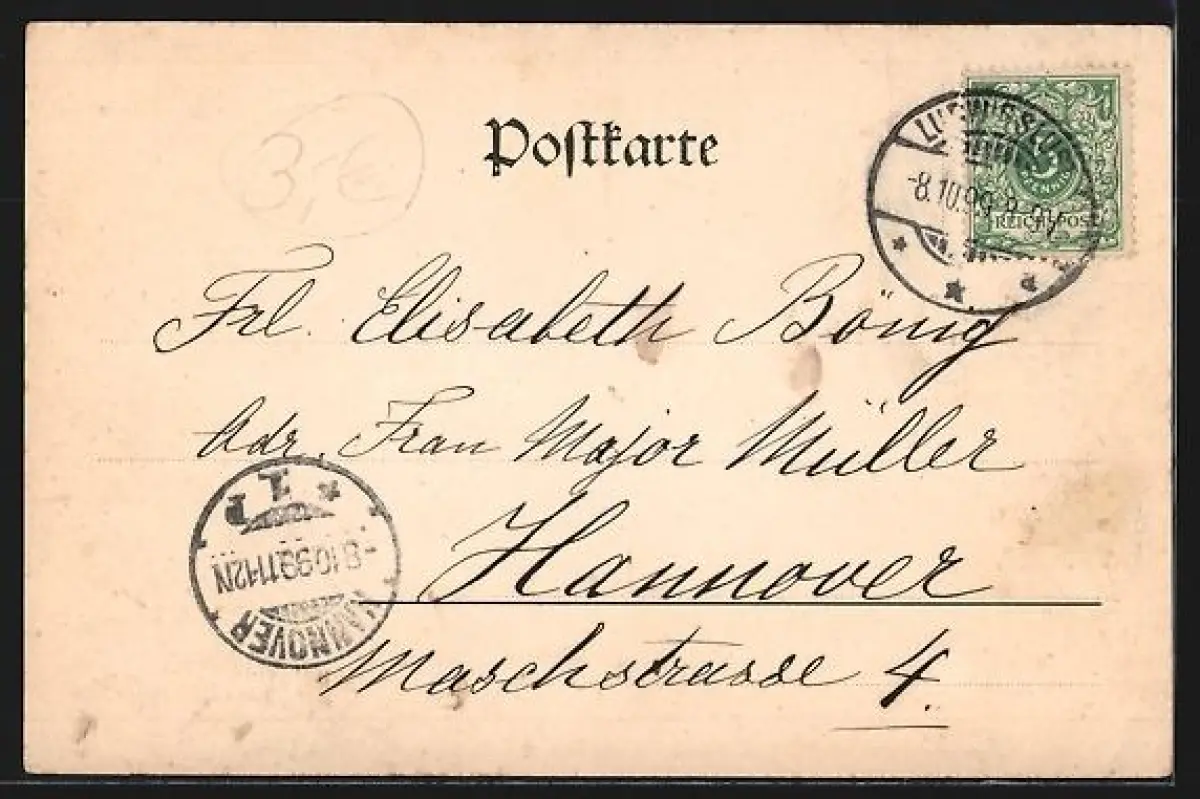 Postkarte
3,-€
5
PFENNIG
REICHSPOST
LUDWIGSLUST
-8.10.99. 8-9V.
Frl. Elisabeth Bönig
Adr. Frau Major Müller
Hannover
Maschstrasse 4.
HANNOVER
-8.10.99.11-12N
1 P